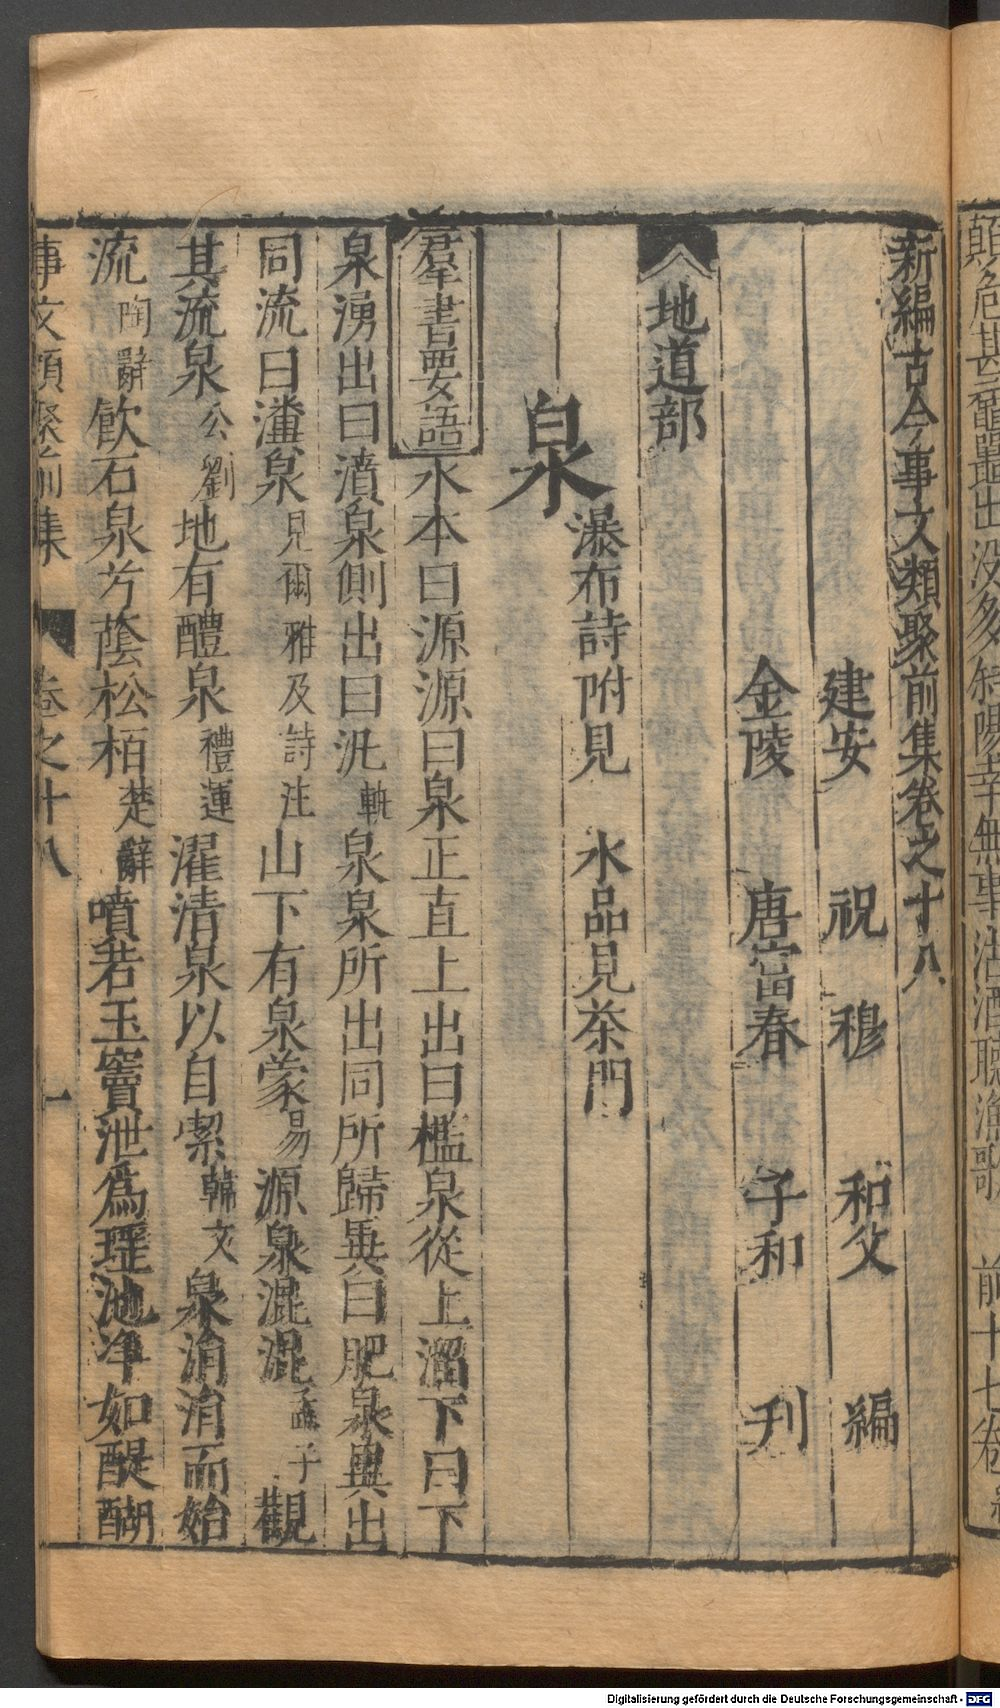 顛危甚 出没多 歸 幸無事沽酒聽漁歌 前十七卷終
新編古今事文類聚前集卷之十八
建安 祝穆 和父 編
金陵 唐富春 子和 刋
地道部
瀑布詩附見 水品見茶門
泉
羣書要語 水本曰源源曰泉正直上出曰檻泉從上溜下曰下
泉湧出曰濆泉側出曰氿軌泉泉所出同所歸異曰肥泉異出
同流曰瀵泉見爾雅及詩注山下有泉蒙易源泉混混孟子觀
其流泉公劉地有醴泉禮運濯清泉以自潔韓文泉涓涓而始
流陶辭飲石泉兮蔭松栢楚辭噴若玉竇泄爲瑤池净如醍醐
事文類聚前集 卷之十八 一
Digitalisierung gefördert durch die Deutsche Forschungsgemeinschaft - DFG